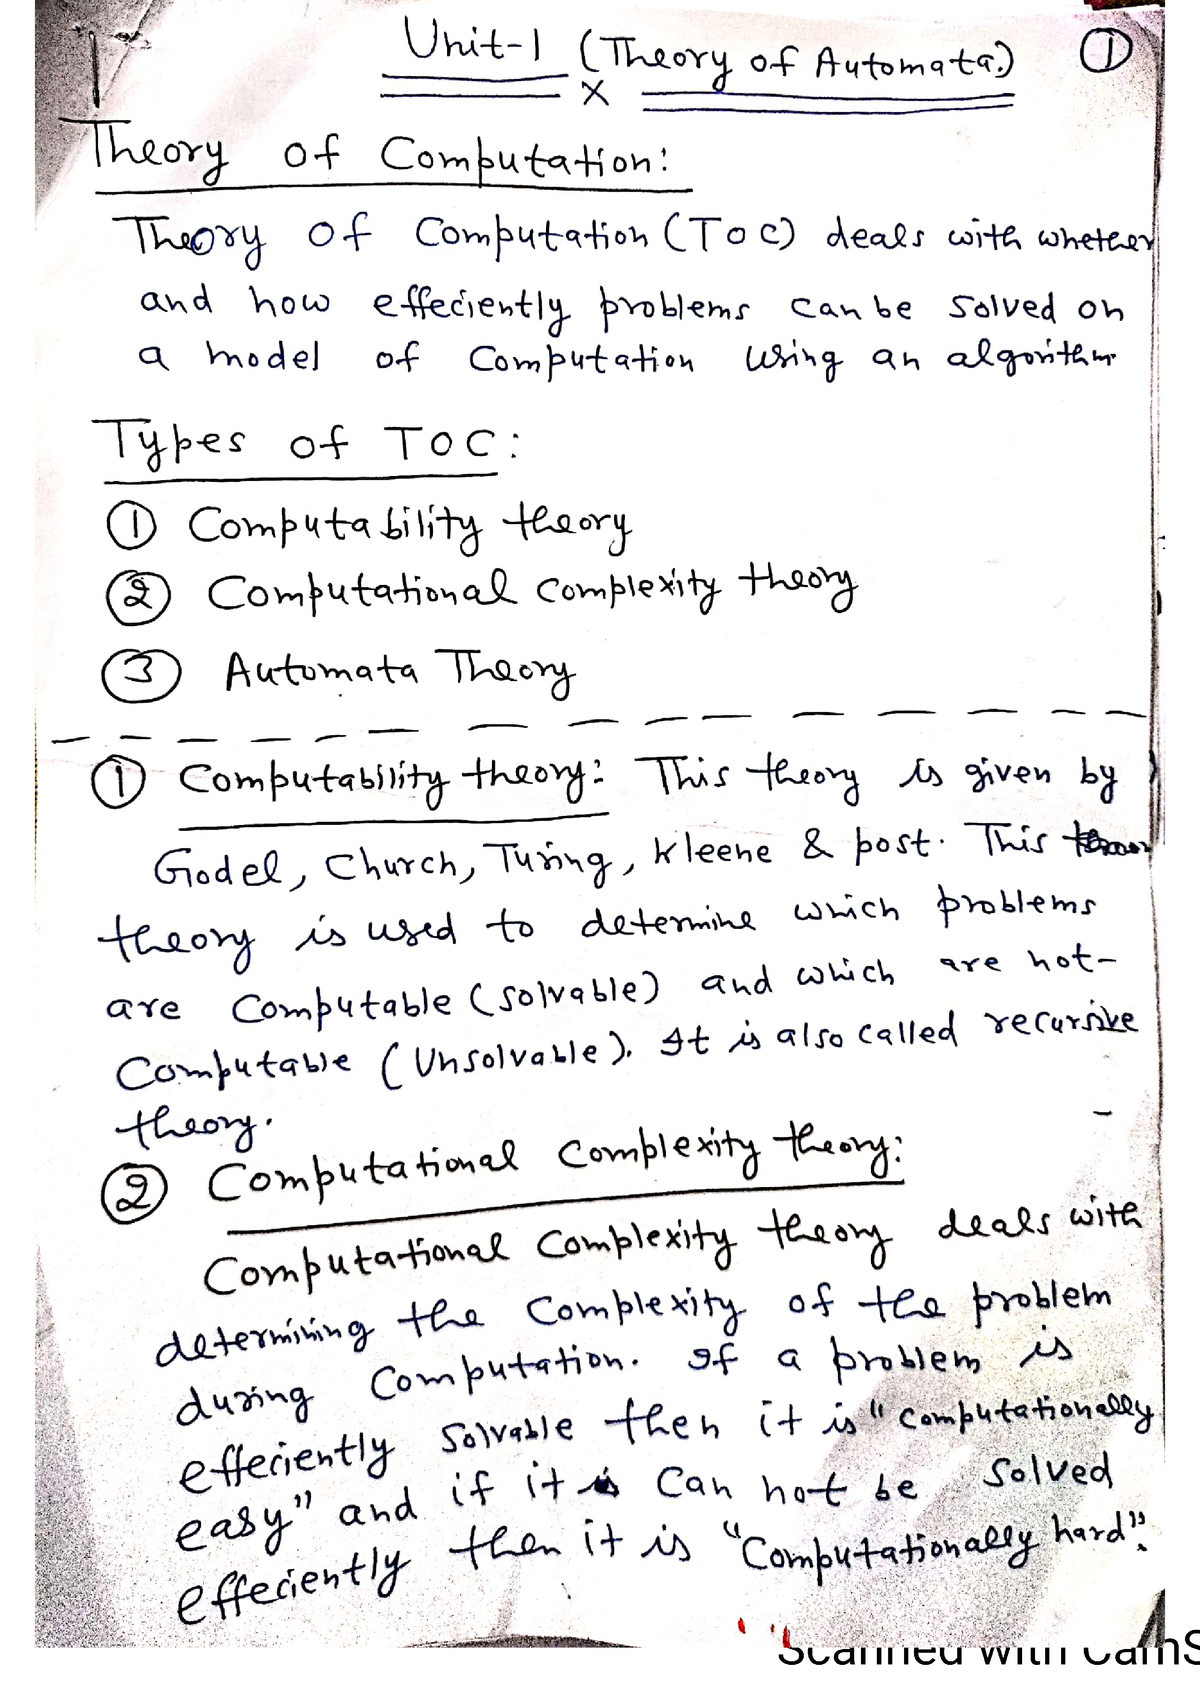 Unit-1 (Theory of Automata) ①
X
Theory of Computation:
Theory of Computation (TOC) deals with whether
and how effeciently problems can be solved on
a model of Computation using an algorithm
Types of TOC:
① Computability theory
② Computational complexity theory
③ Automata Theory
① Computability theory: This theory is given by
Godel, Church, Turing, Kleene & post. This
theory is used to determine which problems
are Computable (solvable) and which are not-
Computable (Unsolvable). It is also called recursive
theory.
② Computational Complexity theory:
Computational Complexity theory deals with
determining the Complexity of the problem
during Computation. If a problem is
effeciently Solvable then it is "Computationally
easy" and if it Can not be Solved
effeciently then it is "Computationally hard".
Scanned with CamS